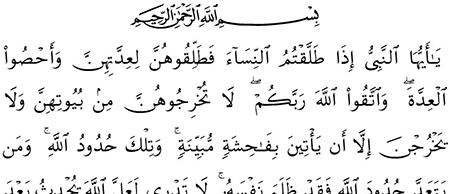 بِسْمِ اللَّهِ الرَّحْمَٰنِ الرَّحِيمِ
يَٰٓأَيُّهَا النَّبِىُّ إِذَا طَلَّقْتُمُ النِّسَآءَ فَطَلِّقُوهُنَّ لِعِدَّتِهِنَّ وَأَحْصُوا۟
الْعِدَّةَ ۖ وَاتَّقُوا۟ اللَّهَ رَبَّكُمْ ۖ لَا تُخْرِجُوهُنَّ مِنۢ بُيُوتِهِنَّ وَلَا
يَخْرُجْنَ إِلَّآ أَن يَأْتِينَ بِفَٰحِشَةٍ مُّبَيِّنَةٍ ۚ وَتِلْكَ حُدُودُ اللَّهِ ۚ وَمَن
يَتَعَدَّ حُدُودَ اللَّهِ فَقَدْ ظَلَمَ نَفْسَهُۥ ۚ لَا تَدْرِى لَعَلَّ اللَّهَ يُحْدِثُ بَعْدَ